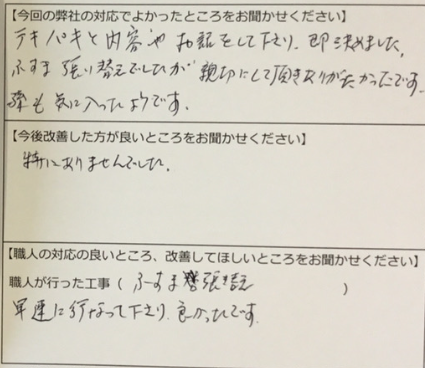 【今回の弊社の対応でよかったところをお聞かせください】
テキパキと内容やお話をして下さり、即決めました。
ふすま張り替えでしたが親切にして頂きありがたかったです。
も気に入ったようです。
【今後改善した方が良いところをお聞かせください】
特にありませんでした。
【職人の対応の良いところ、改善してほしいところをお聞かせください】
職人が行った工事（ ふすま張替え ）
早速に行なって下さり、良かったです。